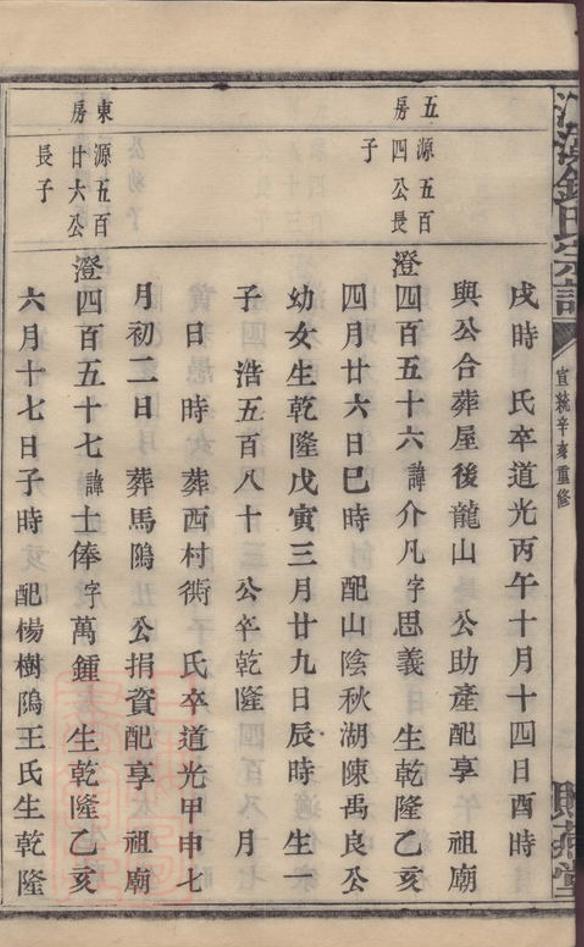 宣統辛亥重修
五房
源五百四公長子
東房
源五百廿六公長子
戌時　氏卒道光丙午十月十四日酉時
與公合葬屋後龍山　公助產配享　祖廟
澄四百五十六諱介凡字思義　生乾隆乙亥
四月廿六日巳時　配山陰秋湖陳禹良公
幼女生乾隆戊寅三月廿九日辰時　生一
子　浩五百八十　公卒乾隆　　　月
日　時　葬西村衖　氏卒道光甲申七
月初二日　葬馬隝　公捐資配享　祖廟
澄四百五十七諱士俸字萬鍾　生乾隆乙亥
六月十七日子時　配楊樹隝王氏生乾隆